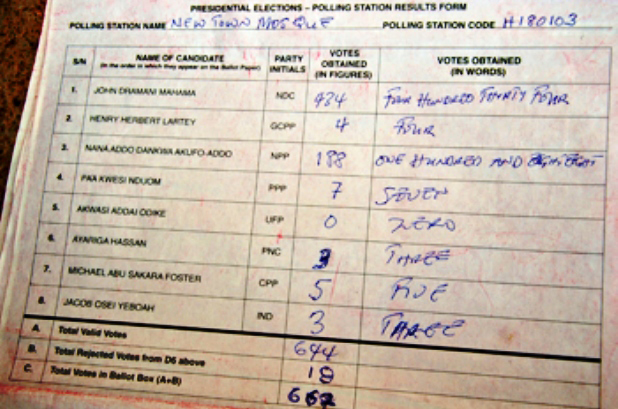 PRESIDENTIAL ELECTIONS – POLLING STATION RESULTS FORM
POLLING STATION NAME NEW TOWN MOSQUE POLLING STATION CODE H180103
S/N NAME OF CANDIDATE (in the order in which they appear on the Ballot Paper) PARTY INITIALS VOTES OBTAINED (IN FIGURES) VOTES OBTAINED (IN WORDS)
1. JOHN DRAMANI MAHAMA NDC 434 FOUR HUNDRED THIRTY FOUR
2. HENRY HERBERT LARTEY GCPP 4 FOUR
3. NANA ADDO DANKWA AKUFO-ADDO NPP 188 ONE HUNDRED AND
4. PAA KWESI NDUOM PPP 7 SEVEN
5. AKWASI ADDAI ODIKE UFP 0 ZERO
6. AYARIGA HASSAN PNC 3 THREE
7. MICHAEL ABU SAKARA FOSTER CPP 5 FIVE
8. JACOB OSEI YEBOAH IND 3 THREE
A. Total Valid Votes 644
B. Total Rejected Votes from D5 above 18
C. Total Votes in Ballot Box (A+B) 662